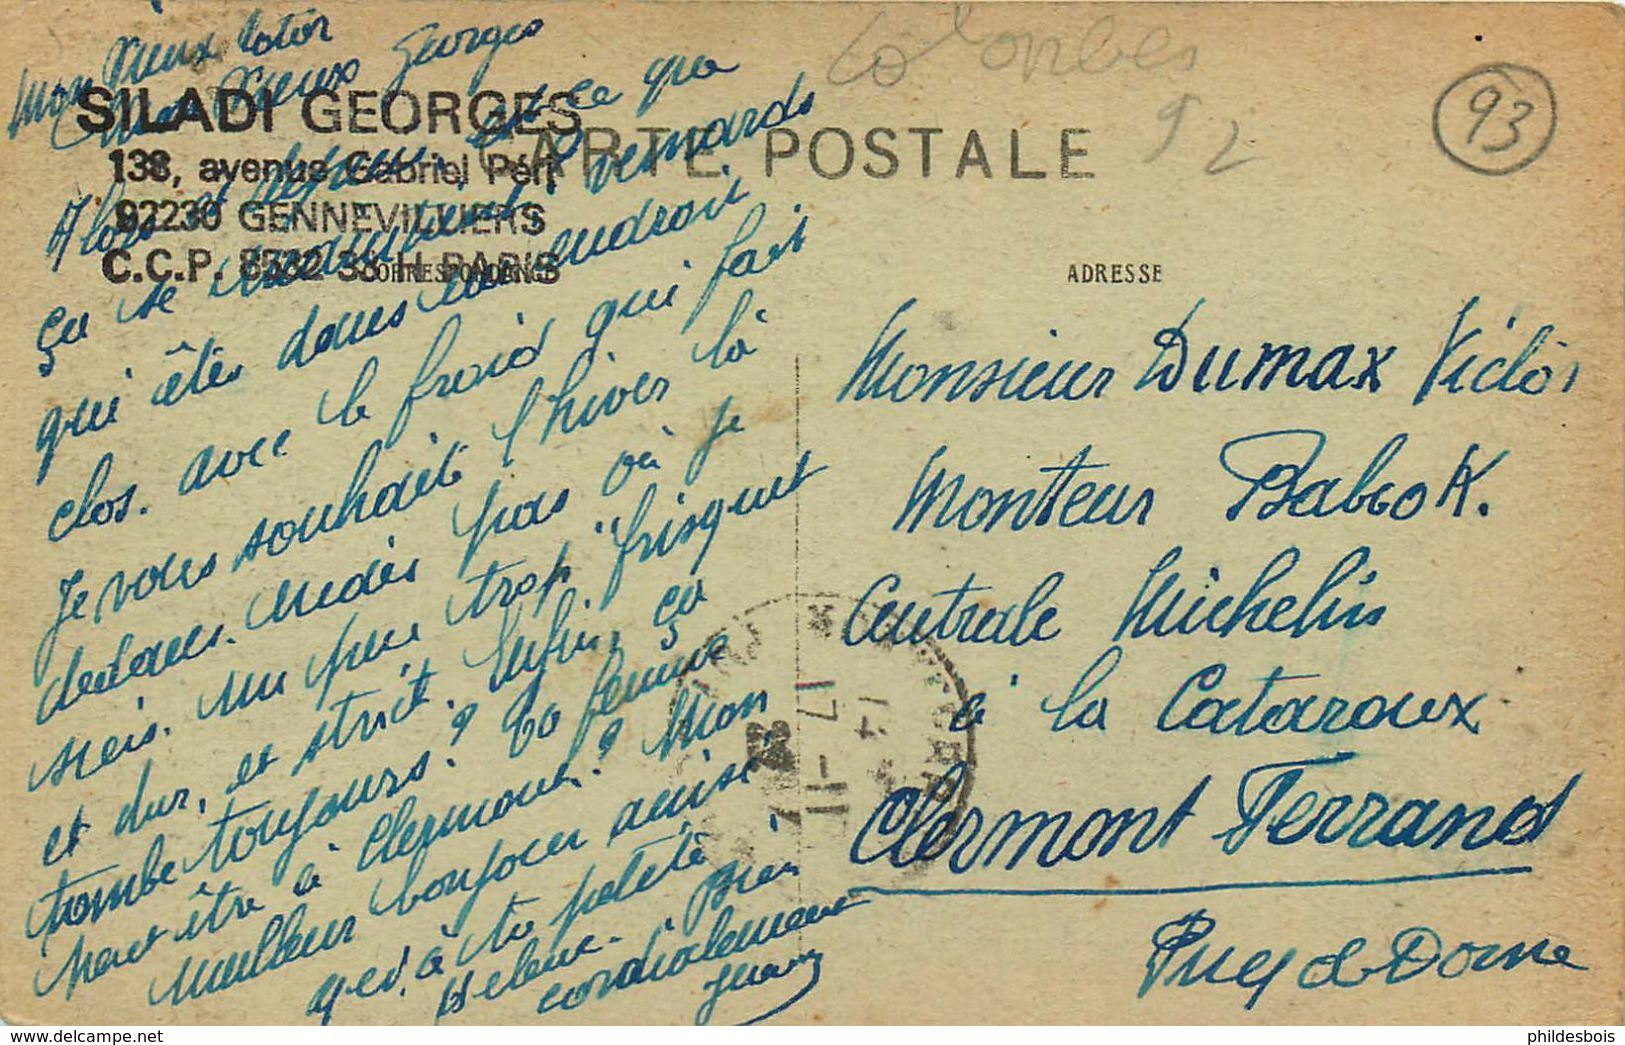 Mon Vieux totor
Mon Vieux Georges
SILADI GEORGES
138, avenue Gabriel Péri
92230 GENNEVILLIERS
C.C.P. 8532 38 H PARIS
CARTE POSTALE
Colombes
92
93
CORRESPONDANCE
ADRESSE
Alors et depuis, est ce que
ça se maintient, vernards
qui êtes dans un endroit
clos. avec le froid qui fait
Je vous souhaite l'hiver là
dedans. mais pas où je
suis. un peu trop "frisquet
et dur, et strict. Enfin, ça
tombe toujours? Ta femme
peut être à Clermont? Mon
meilleur bonjour ainsi
qu'à ta petite
Helene. Bien
cordialement
Monsieur Dumax Victor
Monteur Babcok.
Centrale Michelin
à la Cataroux
Clermont Ferrand
Puy de Dome
17 -11
phildesbois